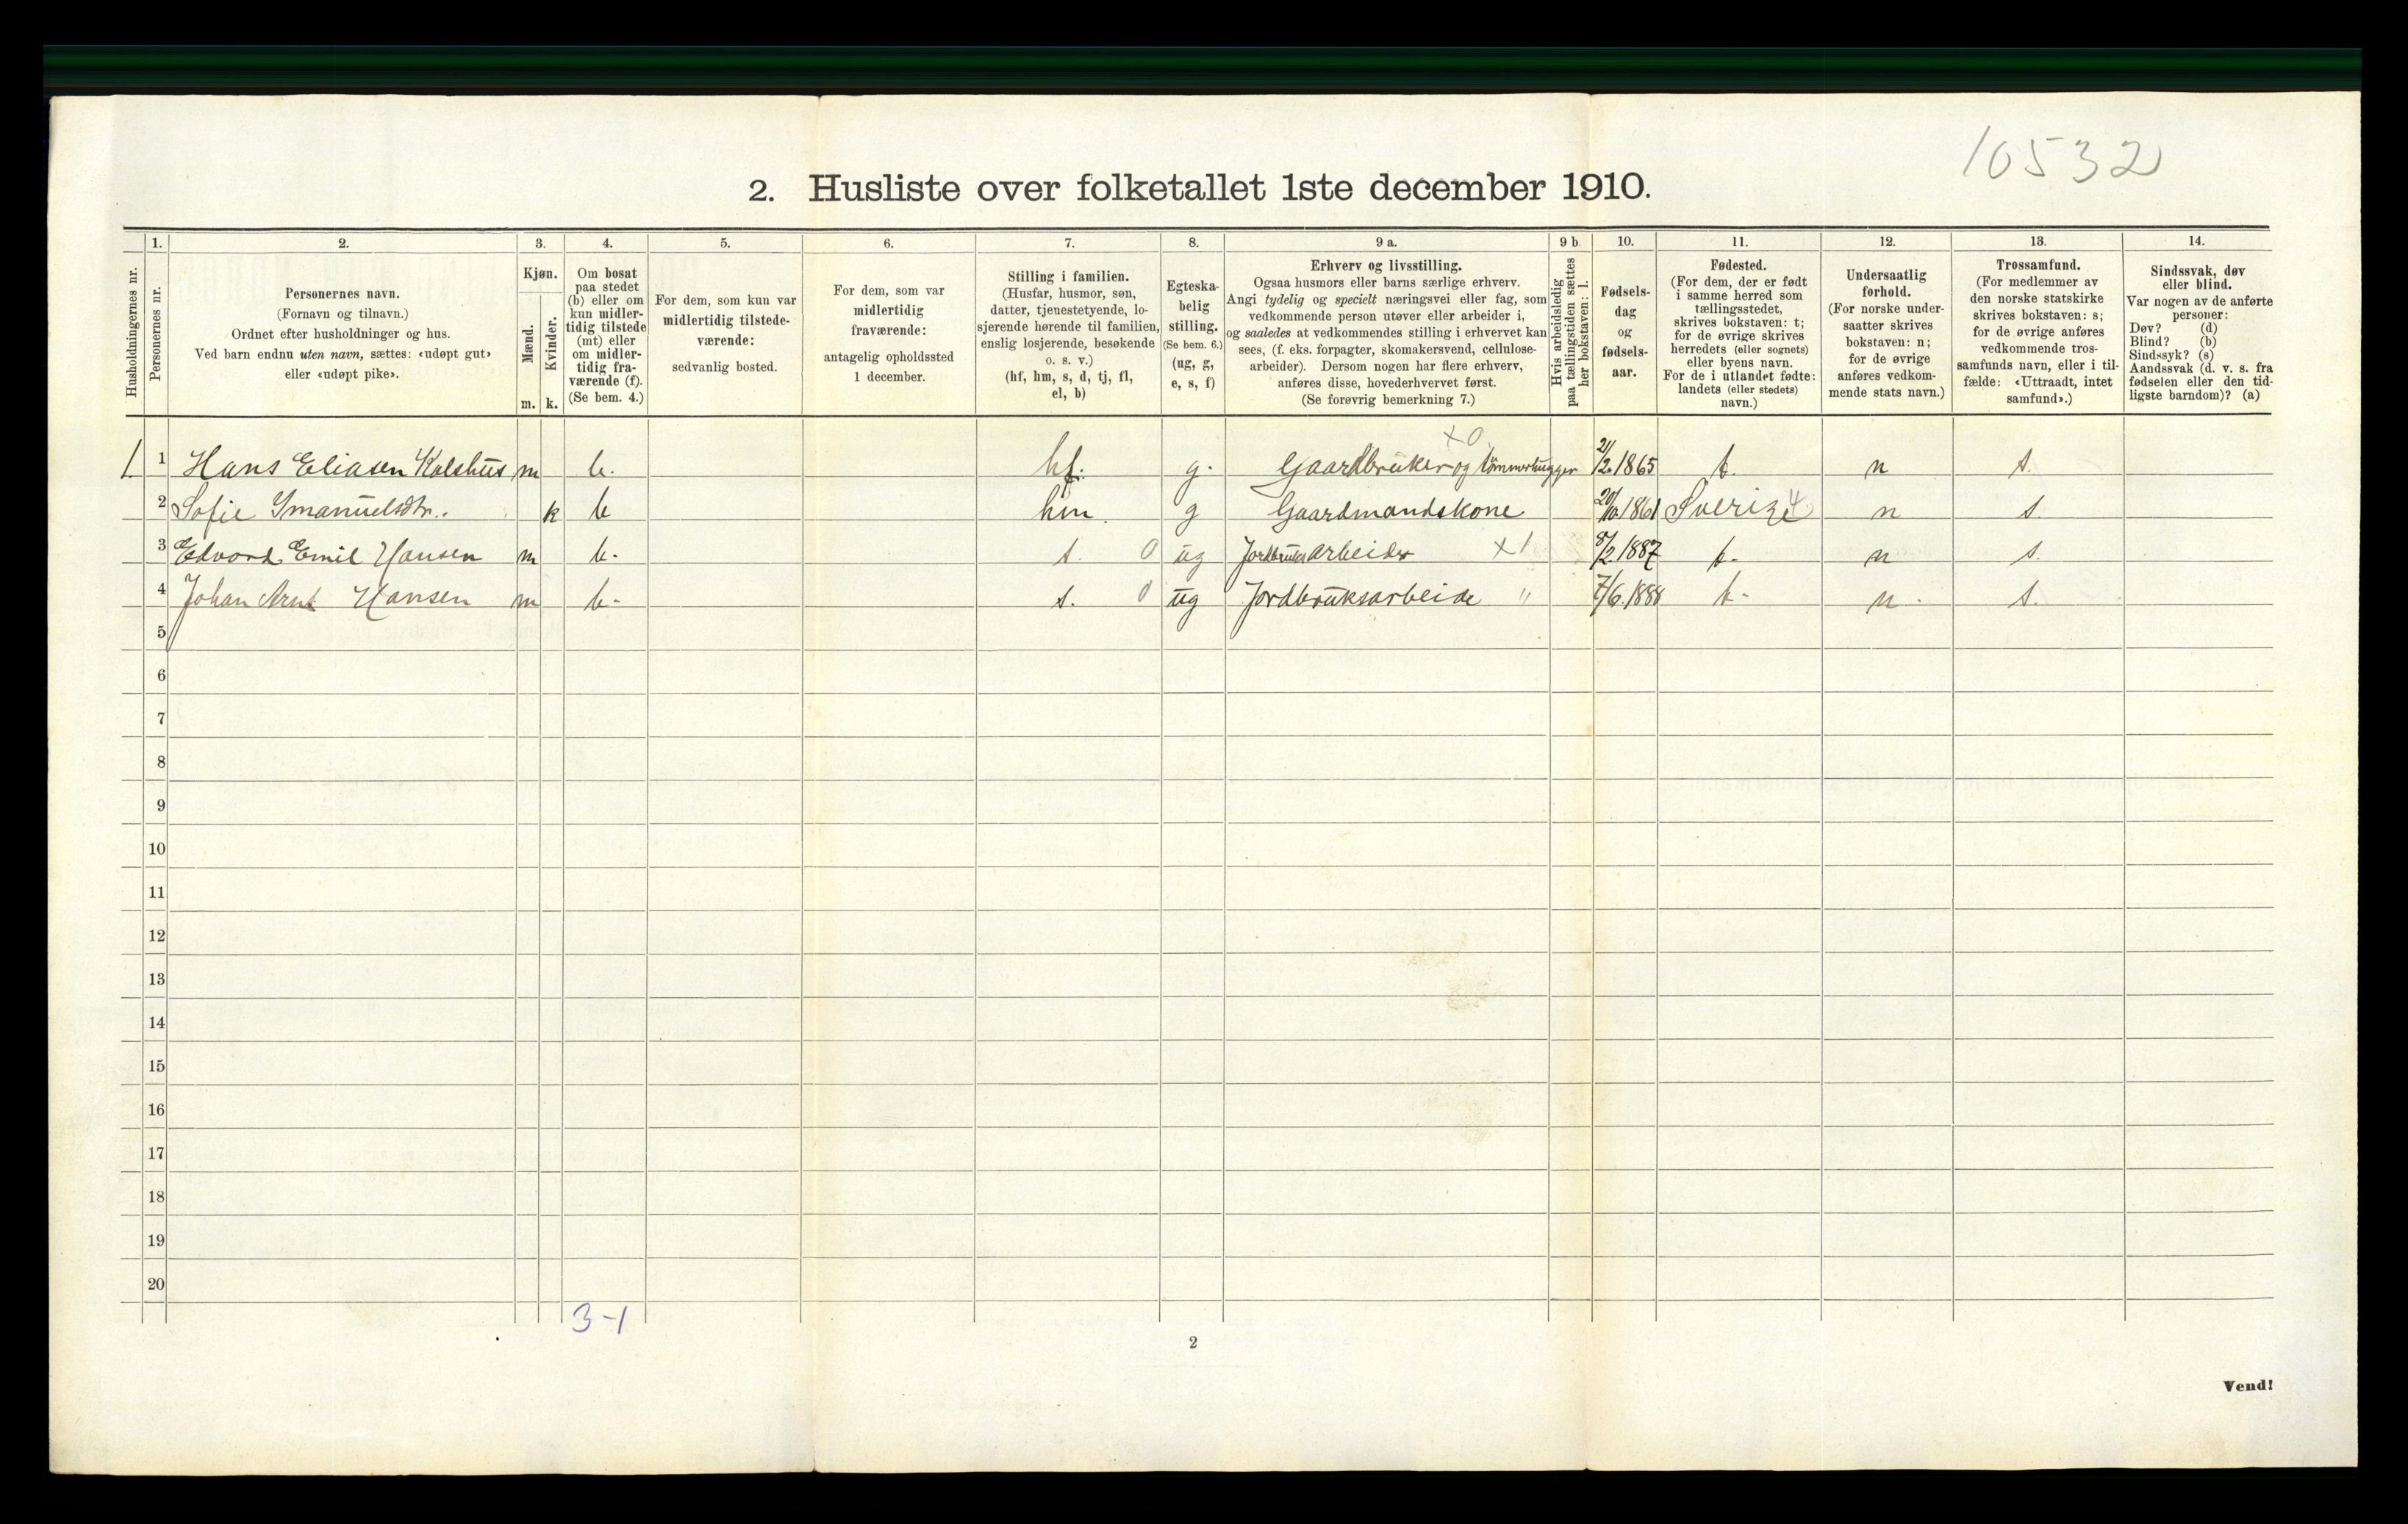 10532
2. Husliste over folketallet 1ste december 1910.
1. 2. 3. 4. 5. 6. 7. 8. 9 a. 9 b. 10. 11. 12. 13. 14.
Husholdningernes nr.
Personernes nr.
Personernes navn.
(Fornavn og tilnavn.)
Ordnet efter husholdninger og hus.
Ved barn endnu uten navn, sættes: «udøpt gut»
eller «udøpt pike».
Kjøn.
Mænd.
Kvinder.
m. k.
Om bosat
paa stedet
(b) eller om
kun midler-
tidig tilstede
(mt) eller
om midler-
tidig fra-
værende (f).
(Se bem. 4.)
For dem, som kun var
midlertidig tilstede-
værende:
sedvanlig bosted.
For dem, som var
midlertidig
fraværende:
antagelig opholdssted
1 december.
Stilling i familien.
(Husfar, husmor, søn,
datter, tjenestetyende, lo-
sjerende hørende til familien,
enslig losjerende, besøkende
o. s. v.)
(hf, hm, s, d, tj, fl,
el, b)
Egteska-
belig
stilling.
(Se bem. 6.)
(ug, g,
e, s, f)
Erhverv og livsstilling.
Ogsaa husmors eller barns særlige erhverv.
Angi tydelig og specielt næringsvei eller fag, som
vedkommende person utøver eller arbeider i,
og saaledes at vedkommendes stilling i erhvervet kan
sees, (f. eks. forpagter, skomakersvend, cellulose-
arbeider). Dersom nogen har flere erhverv,
anføres disse, hovederhvervet først.
(Se forøvrig bemerkning 7.)
Hvis arbeidsledig
paa tællingstiden sættes
her bokstaven: l.
Fødsels-
dag
og
fødsels-
aar.
Fødested.
(For dem, der er født
i samme herred som
tællingsstedet,
skrives bokstaven: t;
for de øvrige skrives
herredets (eller sognets)
eller byens navn.
For de i utlandet fødte:
landets (eller stedets)
navn.)
Undersaatlig
forhold.
(For norske under-
saatter skrives
bokstaven: n;
for de øvrige
anføres vedkom-
mende stats navn.)
Trossamfund.
(For medlemmer av
den norske statskirke
skrives bokstaven: s;
for de øvrige anføres
vedkommende tros-
samfunds navn, eller i til-
fælde: «Uttraadt, intet
samfund».)
Sindssvak, døv
eller blind.
Var nogen av de anførte
personer:
Døv? (d)
Blind? (b)
Sindssyk? (s)
Aandssvak (d. v. s. fra
fødselen eller den tid-
ligste barndom)? (a)
x0
1. 1 Hans Eliasen Kolshus m b. hf. g. Gaardbruker og tømmerhugger 21/2.1865 t. n s.
2 Sofie Imanuelsdtr. k b hm. g Gaardmandskone 20/10.1861 Sverige 4 n s.
3 Edvard Emil Hansen m b. s. 0 ug Jordbruksarbeider x1 8/2.1887 t. n s.
4 Johan Arnt Hansen m b. s. 0 ug Jordbruksarbeide " 7/6.1888 t. n. s.
5
6
7
8
9
10
11
12
13
14
15
16
17
18
19
20
3-1
2
Vend!